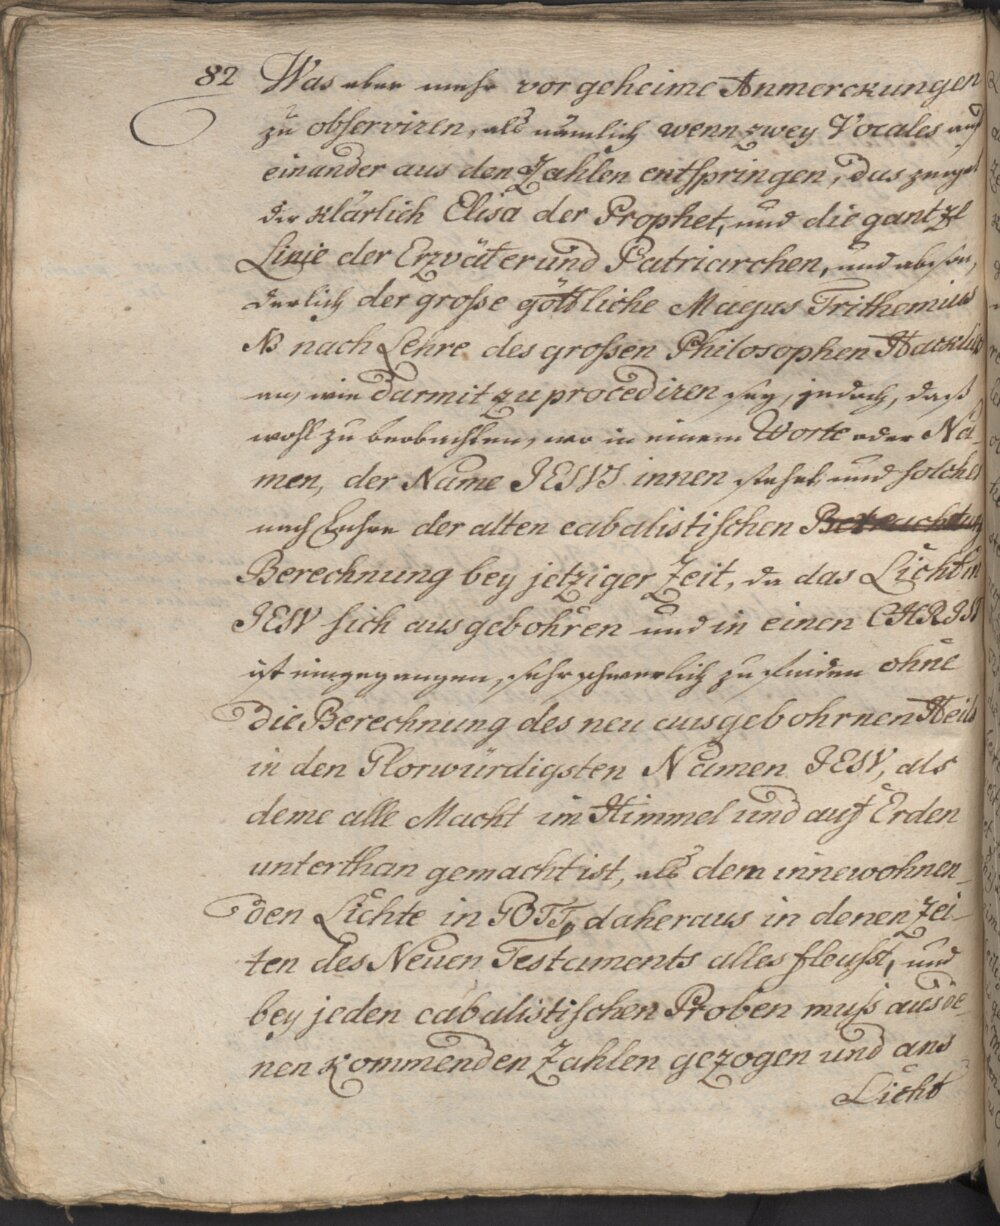 82 Was aber mehr vor geheime Anmerckungen
zu observiren, als nämlich wenn zwey Vocales auf
einander aus den Zahlen entspringen, das zeiget
dir klärlich Elisa der Prophet, und die gantze
Linie der Erzväter und Patriarchen, und abson,
derlich der große göttliche Magus Trithemius
NB nach Lehre des großen Philosophen
an, wie darmit zu procediren sey, jedoch, daß
wohl zu beobachten, wo in einem Worte oder Na-
men, der Name JESVS innen stehet und solches
nach Lehre der alten cabalistischen Betrachtung
Berechnung bey jetziger Zeit, da das Licht in
JESV sich ausgebohren und in einen CHRISTI
ist eingegangen, sehr schwerlich zu finden ohne
die Berechnung des neu ausgebohrnen Heils
in den Glorwürdigsten Namen JESV, als
deme alle Macht im Himmel und auf Erden
unterthan gemacht ist, als dem innewohnen-
den Lichte in GOTT, daheraus in denen Zei-
ten des Neuen Testaments alles fleußt, und
bey jeden cabalistischen Proben muß aus de-
nen kommenden Zahlen gezogen und ans
Licht